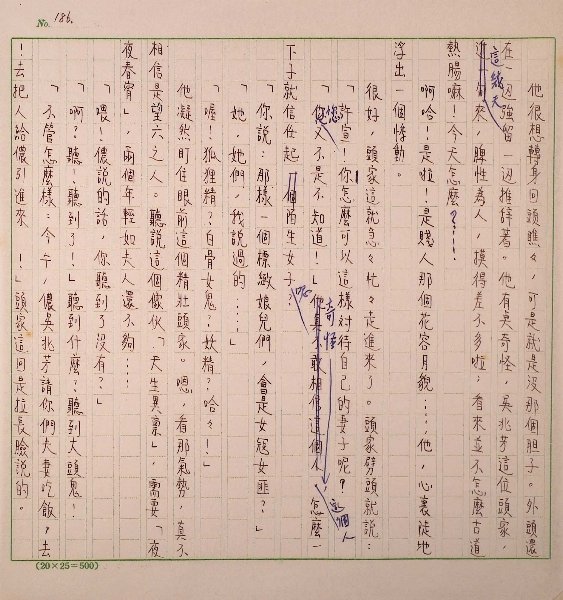 No. 186.
他很想轉身回頭瞧々，可是就是沒那個胆子。外頭還
在一迎強留一迎推辭著。他有臭奇怪，吳兆芳這位頭家，
這幾天
進一向來，脾性為人，摸得差不多啦；看來並不怎麼古道
熱腸嘛！今天怎麼？……
啊哈！是啦！是賤人那個花容月貌……他，心裏陡地
浮出一個悸動。
很好，頭家這就急々忙々走進來了。頭家劈頭就說：
「許宣！你怎麼可以這樣對待自己的妻子呢？
「您又不是不知道！」他真不敢相信這個人，怎麼一
奇怪
這個人
下子就信任起一個陌生女子？
呢
「你說：那樣一個標緻娘兒們，會是女寇女匪？」
「她，她們，我說過的……」
「喔！狐狸精？白骨女鬼？妖精？哈々！」
他凝然盯住眼前這個精壯頭家。嗯，看那氣勢，真不
相信是望六之人。聽說這個傢伙「天生異稟」，需要「夜
夜春宵」，兩個年輕如夫人還不夠……
「喂！儂說的話，你聽到了沒有？」
「啊？聽！聽到了！」聽到什麼？聽到大頭鬼。
「不管怎麼樣：今午，儂吳兆芳請你們夫妻吃飯？去
！去把人給儂引進來！」頭家這回是拉長臉說的。
(20×25=500)